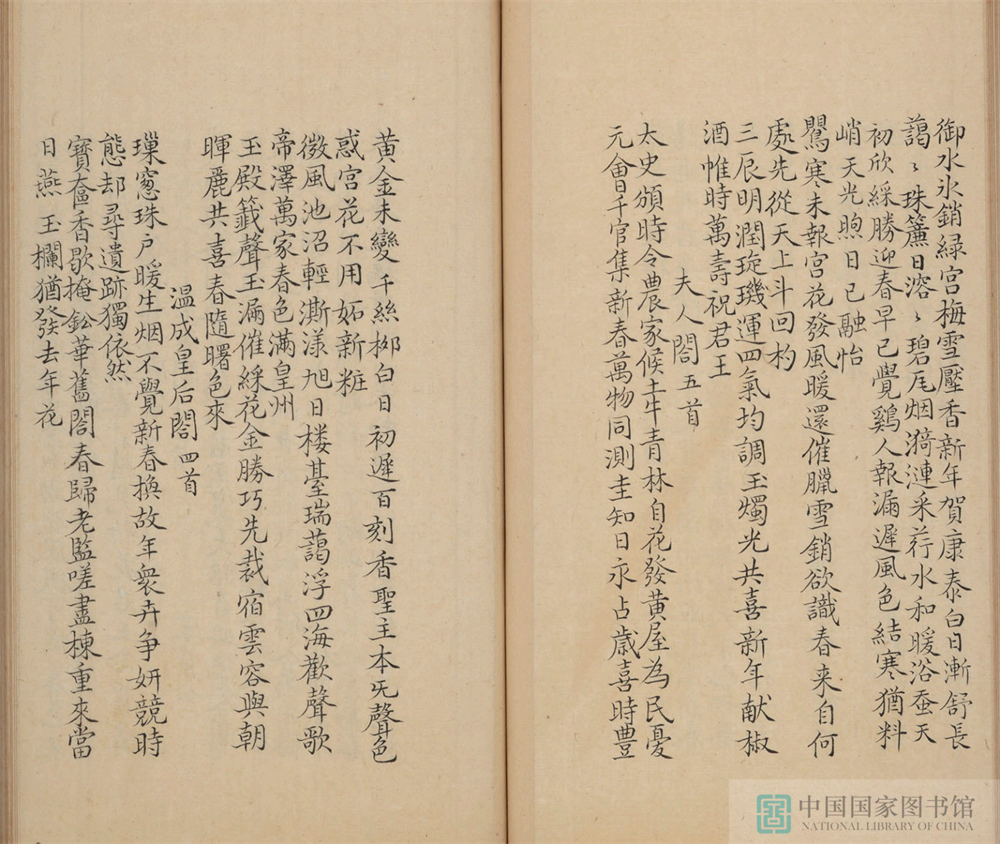 御水氷銷緑宫梅雪壓香新年賀康泰白日漸舒長
藹〻珠簾日溶〻碧尾烟漪漣采荇水和暖浴蚕天
初欣綵勝迎春早已覺鷄人報漏遲風色結寒猶料
峭天光煦日已融怡
鸎寒未報宫花發風暖還催臘雪銷欲識春来自何
處先從天上斗回杓
三辰明潤琁璣運四氣均調玉燭光共喜新年献椒
酒惟時萬壽祝君王
夫人閤五首
太史頒時令農家候土牛青林自花發黄屋為民憂
元會千官集新春萬物同測圭知日永占歲喜時豊
黄金未變千絲栁白日初遲百刻香聖主本旡聲色
惑宫花不用妬新粧
微風池沼輕澌漾旭日楼臺瑞藹浮四海歡聲歌
帝澤萬家春色滿皇州
玉殿籤聲玉漏催綵花金勝巧先裁宿雲容與朝
暉麗共喜春隨曙色來
温成皇后閤四首
璅窻珠户暖生烟不覺新春換故年衆卉争妍競時
態却尋遺跡獨依然
寳奩香歇掩鈆華舊閤春歸老監嗟畫棟重來當
日燕玉欄猶發去年花
中国国家图书馆
NATIONAL LIBRARY OF CHINA